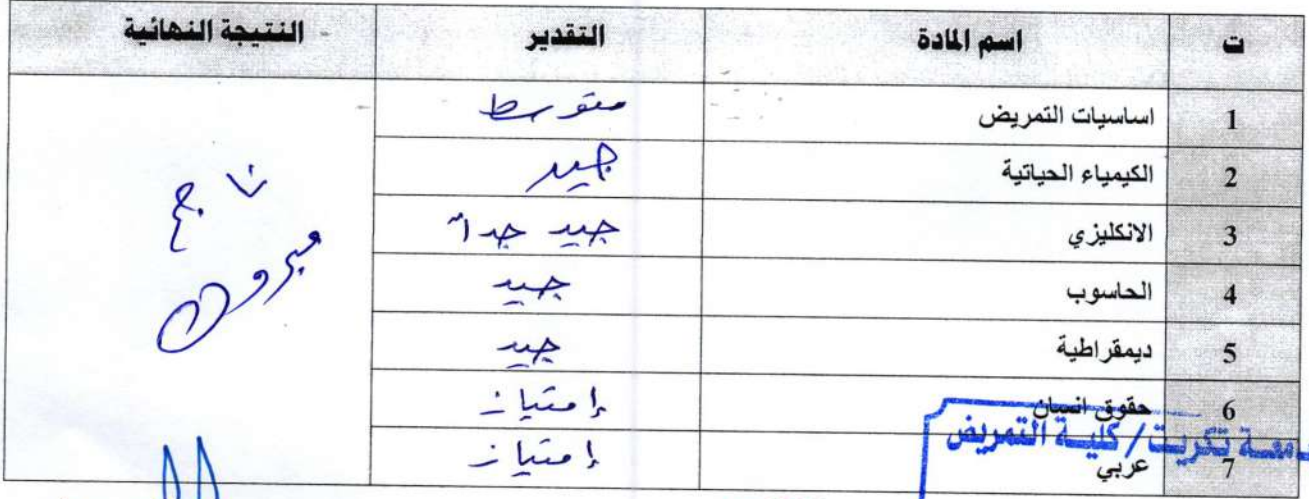 ت اسم المادة التقدير النتيجة النهائية
1 اساسيات التمريض متوسط
2 الكيمياء الحياتية جيد
3 الانكليزي جيد جداً
4 الحاسوب جيد
5 ديمقراطية جيد
6 حقوق انسان إمتياز
7 عربي إمتياز
ناجح
مبروك
جامعة تكريت / كلية التمريض